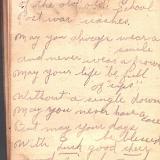 of the old old school
Best war wishes.
May you always wear a
smile
and never wear a frown
May your life be full
of "ups"
Without a single down
May you never have
care
But may your days
With good cheer